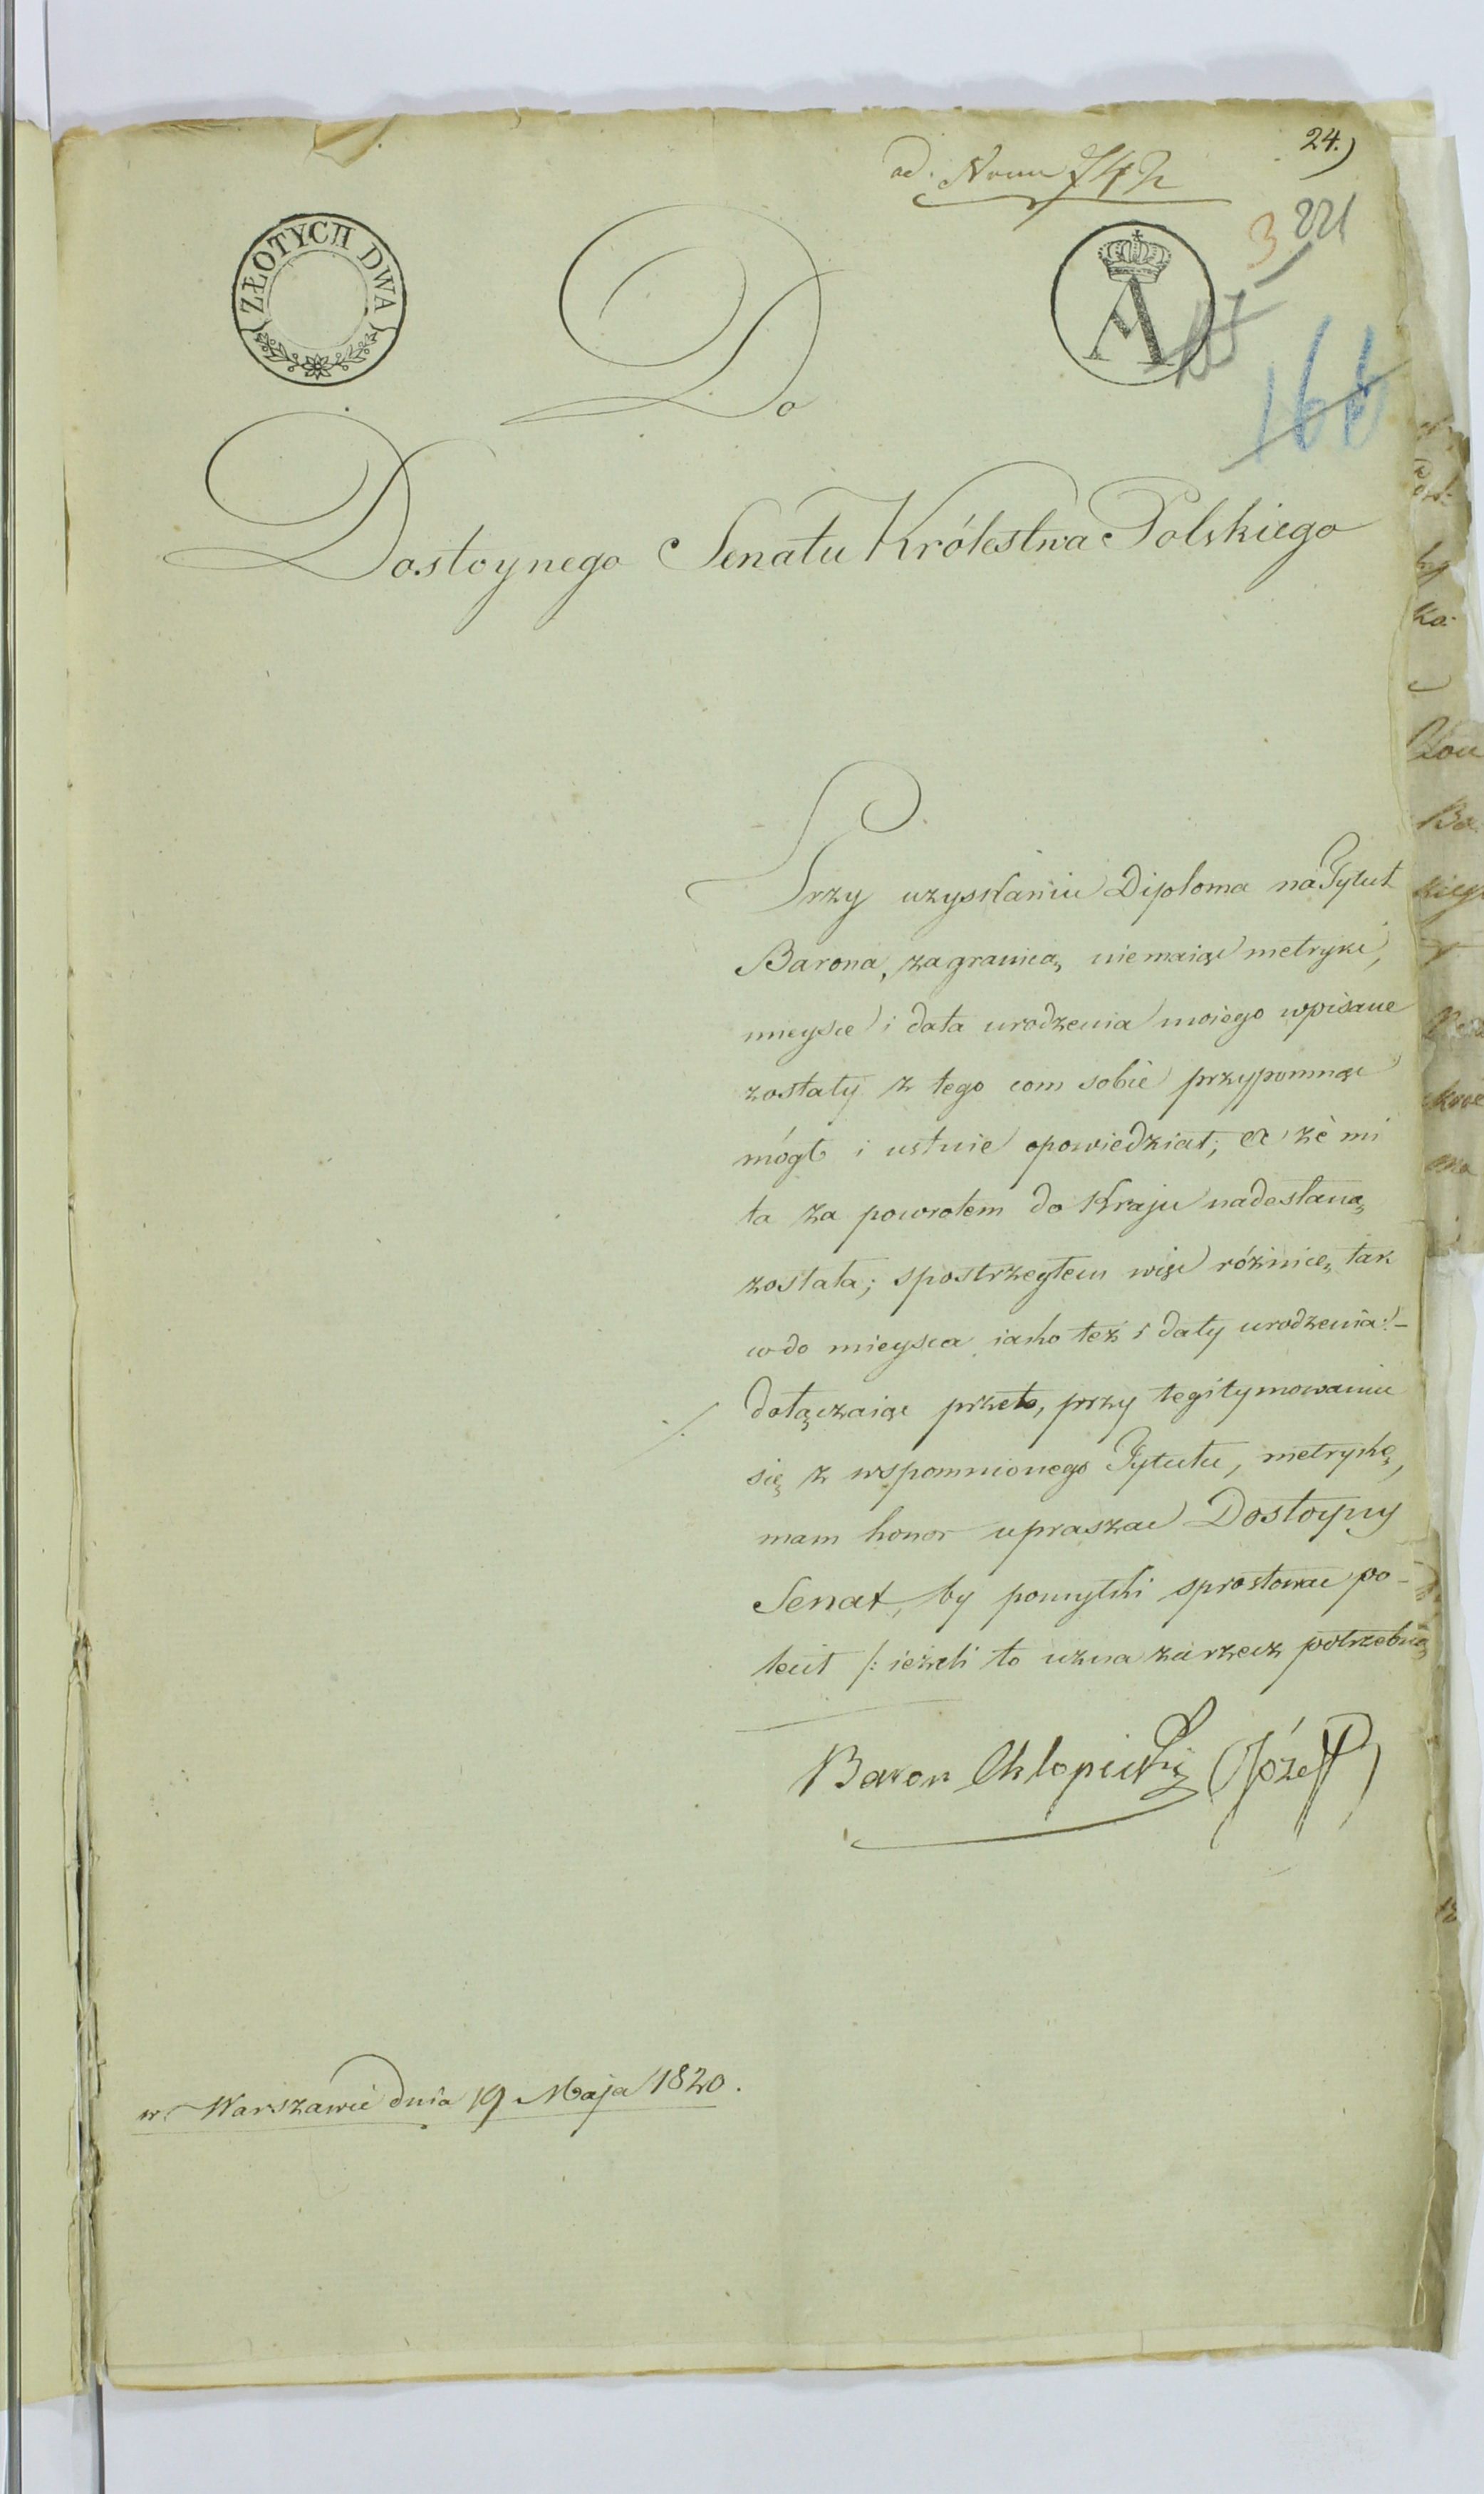 24.)
ad. Num 742
3 221
ZŁOTYCH DWA
A
166
Do
Dostoynego Senatu Królestwa Polskiego
Przy uzyskaniu Diploma na Tytuł
Barona, za granicą, nie maiąc metryki,
mieysce i data urodzenia moiego wpisane
zostały z tego com sobie przypomnąc
mógł i ustnie opowiedział; a że mi
ta za powrotem do Kraju nadesłaną
została; spostrzegłem więc róźnicę, tak
co do mieysca iako też i daty urodzenia:-
dołączaiąc przeto, przy legitymowaniu
się z wspomnionego Tytułu, metrykę,
mam honor upraszać Dostoyny
Senat, by pomyłki sprostować po-
lecił /: ieżeli to uzna za rzecz potrzebną
Baron Chłopicki Józef
w Warszawie dnia 19 Maja 1820.